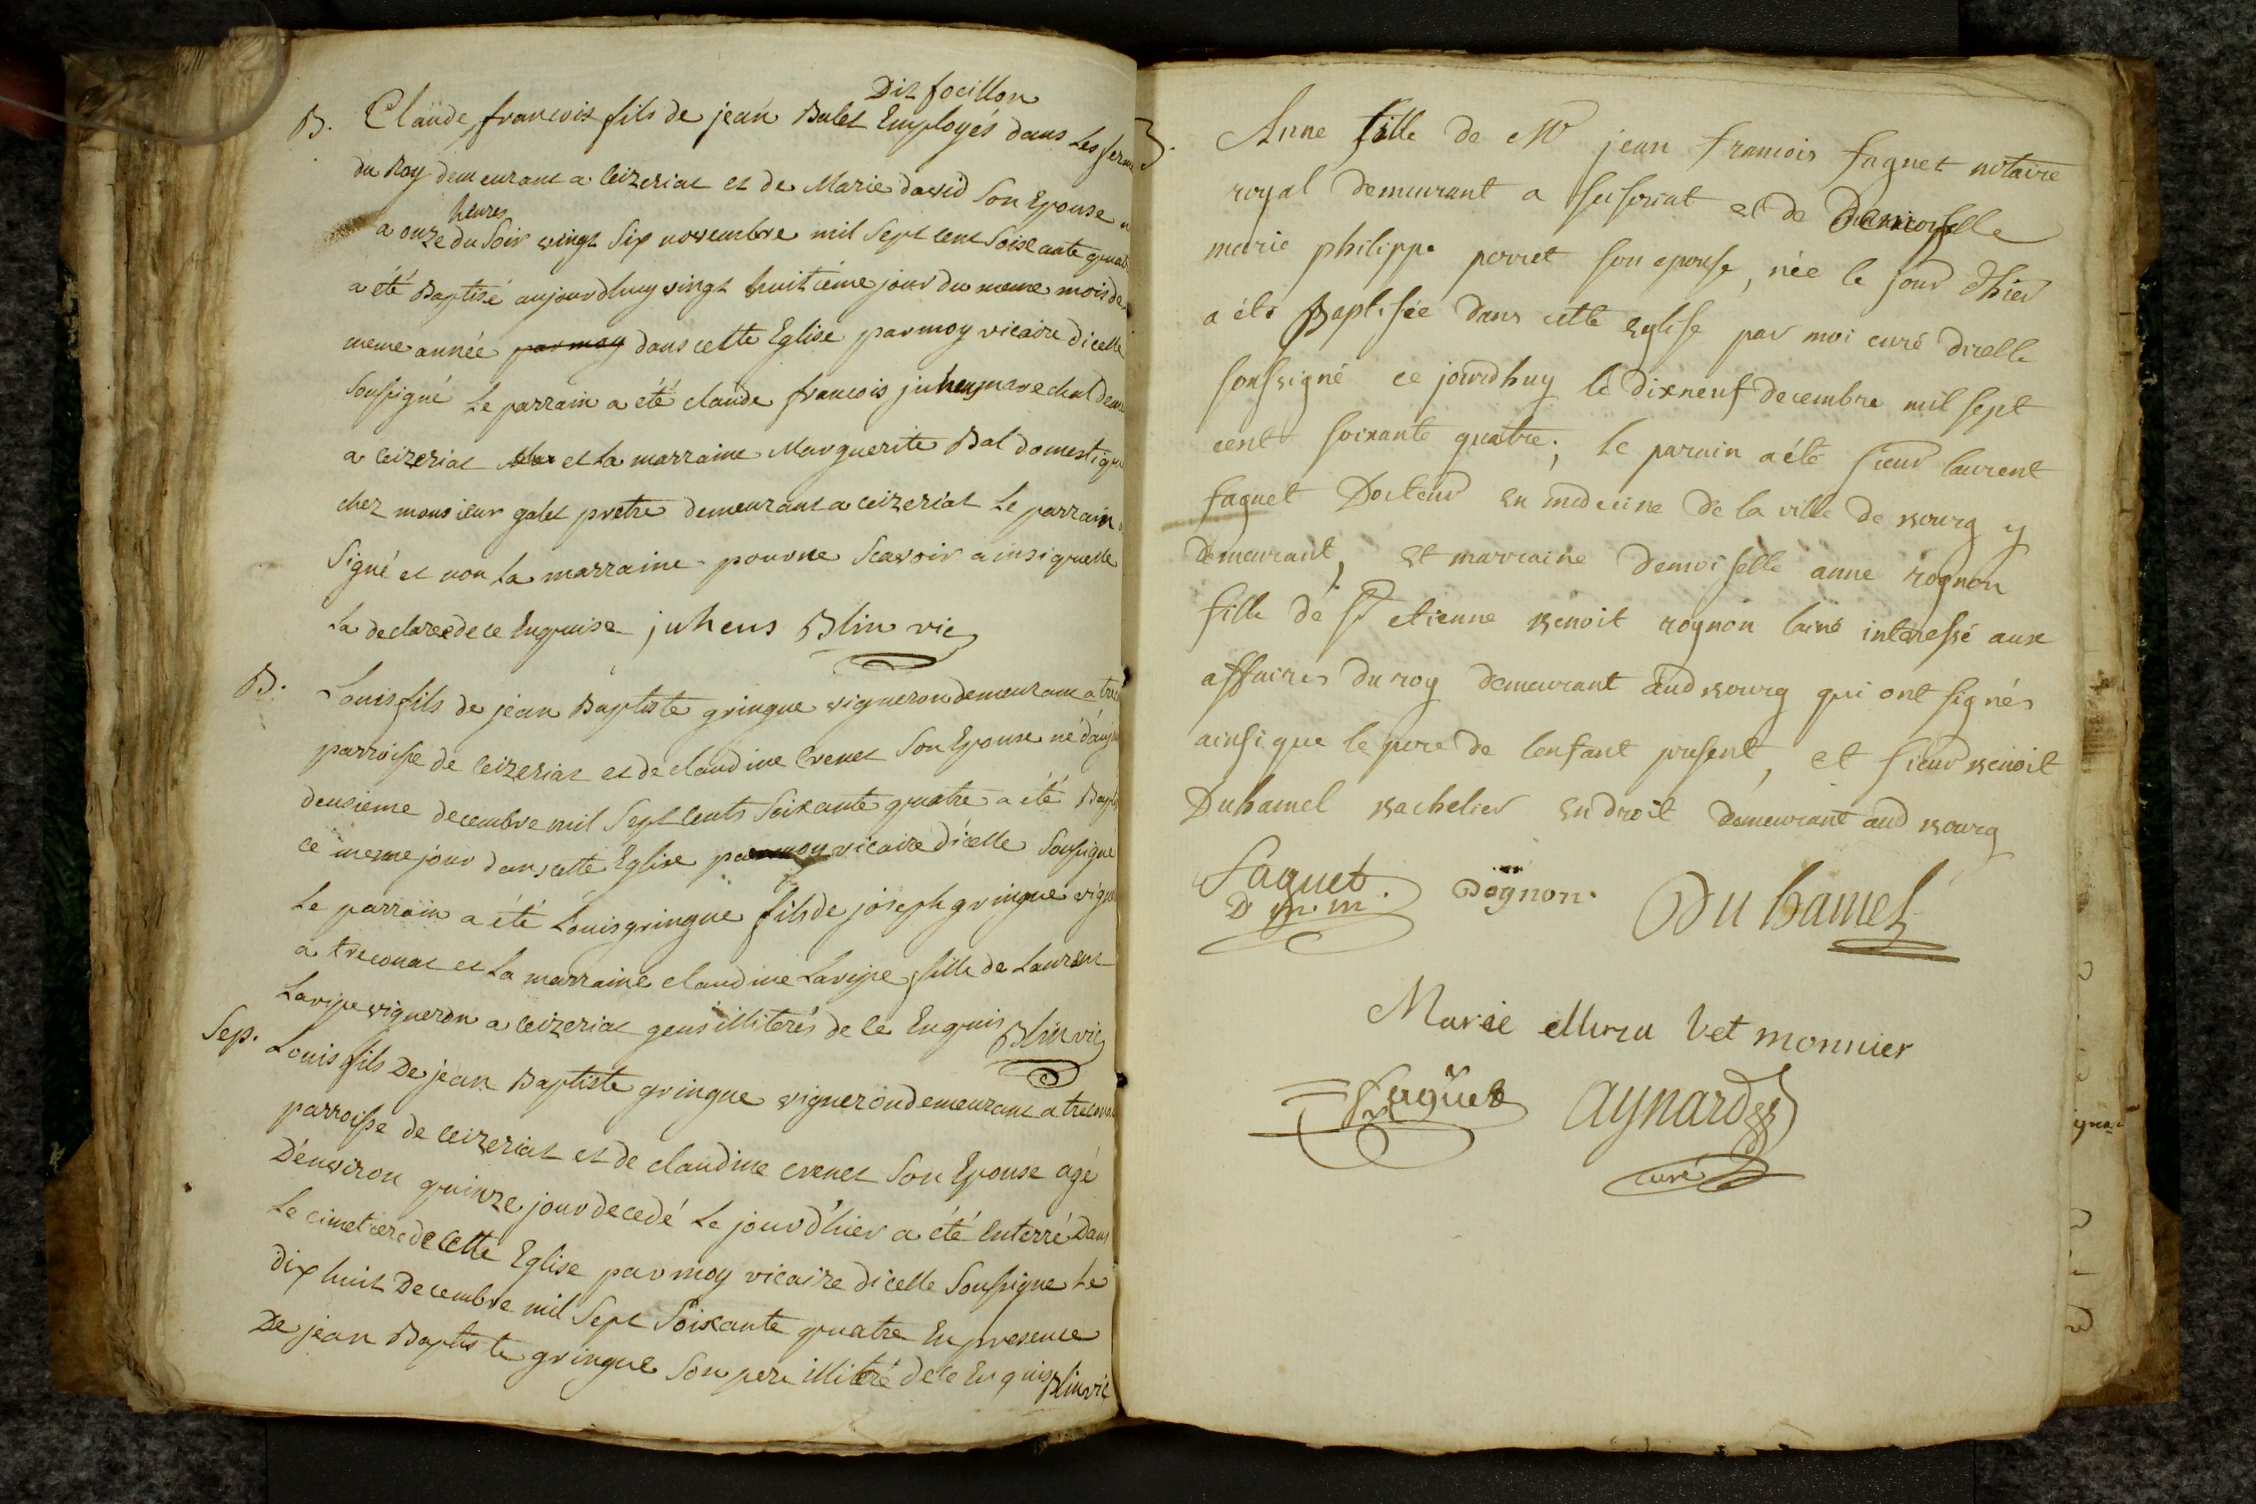 Dit focillon
B. Claude francois fils de jean Balet Employés dans Les ferm
du Roy demeurant a Ceizeriat et de Marie david Son Epouse
a onze heures du Soir vingt Six novembre mil Sept cent Soisçante quat
a été Baptisé aujourdhuy vingt huitième jour du meme mois de
meme année par moy dans cette Eglise par moy vicaire dicelle
Soussigné Le parrain a été claude francois juhens marechal dem
a Ceizeriat et La marraine Marguerite Bal domestique
chez monsieur galet pretre demeurant a ceizeriat Le parrain
Signé et non La marraine pour ne Scavoir ainsi quelle
La declaree de ce Enquise juhens Blin vic
B. Louis fils de jean Baptiste gringue vigneron demeurant a tre
parroisse de Ceizeriat et de claudine Crenet Son Epouse né daujour
deusieme decembre mil Sept Cents Soixante quatre a été Bapti
ce meme jour dans cette Eglise par moy vicaire dicelle Soussigné
Le parrain a été Louis gringue fils de joseph gringue vigne
a treconat et La marraine claudine Lavipe fille de Laurent
Lavipe vigneron a Ceizeriat gens illiterés de ce Enquis Blin vic
Sep. Louis fils De jean Baptiste gringue vigneron demeurant a trecona
parroisse de Ceizeriat et de claudine crenet Son Epouse agé
D'environ quinze jour decedé Le jour d'hier a été Enterré Dans
Le cimetiere de Cette Eglise par moy vicaire dicelle Soussigne Le
dix huit Decembre mil Sept Soixante quatre En presence
De jean Baptiste gringue Son pere illitéré de ce Enquis Blin vic
B. Anne fille de Mr jean francois faguet notaire
royal demeurant a seiseriat et de Demoiselle
marie philippe perret son epouse, née le jour d'hier
a été Baptisée dans cette Eglise par moi curé dicelle
soussigné ce jourdhuy le dixneuf decembre mil sept
cent soixante quatre; le parain a été sieur laurent
faguet Docteur en medecine de la ville de Bourg y
demeurant, et marraine demoiselle anne rognon
fille de Sr etienne Benoit rognon lainé interessé aux
affaires du roy demeurant aud Bourg qui ont signés
ainsi que le pere de lenfant present, et sieur Benoit
Duhamel Bachelier en droit demeurant aud Bourg
Faguet
D m.m. Rognon. Duhamel
Marie vet monnier
Faguet Aynard
curé